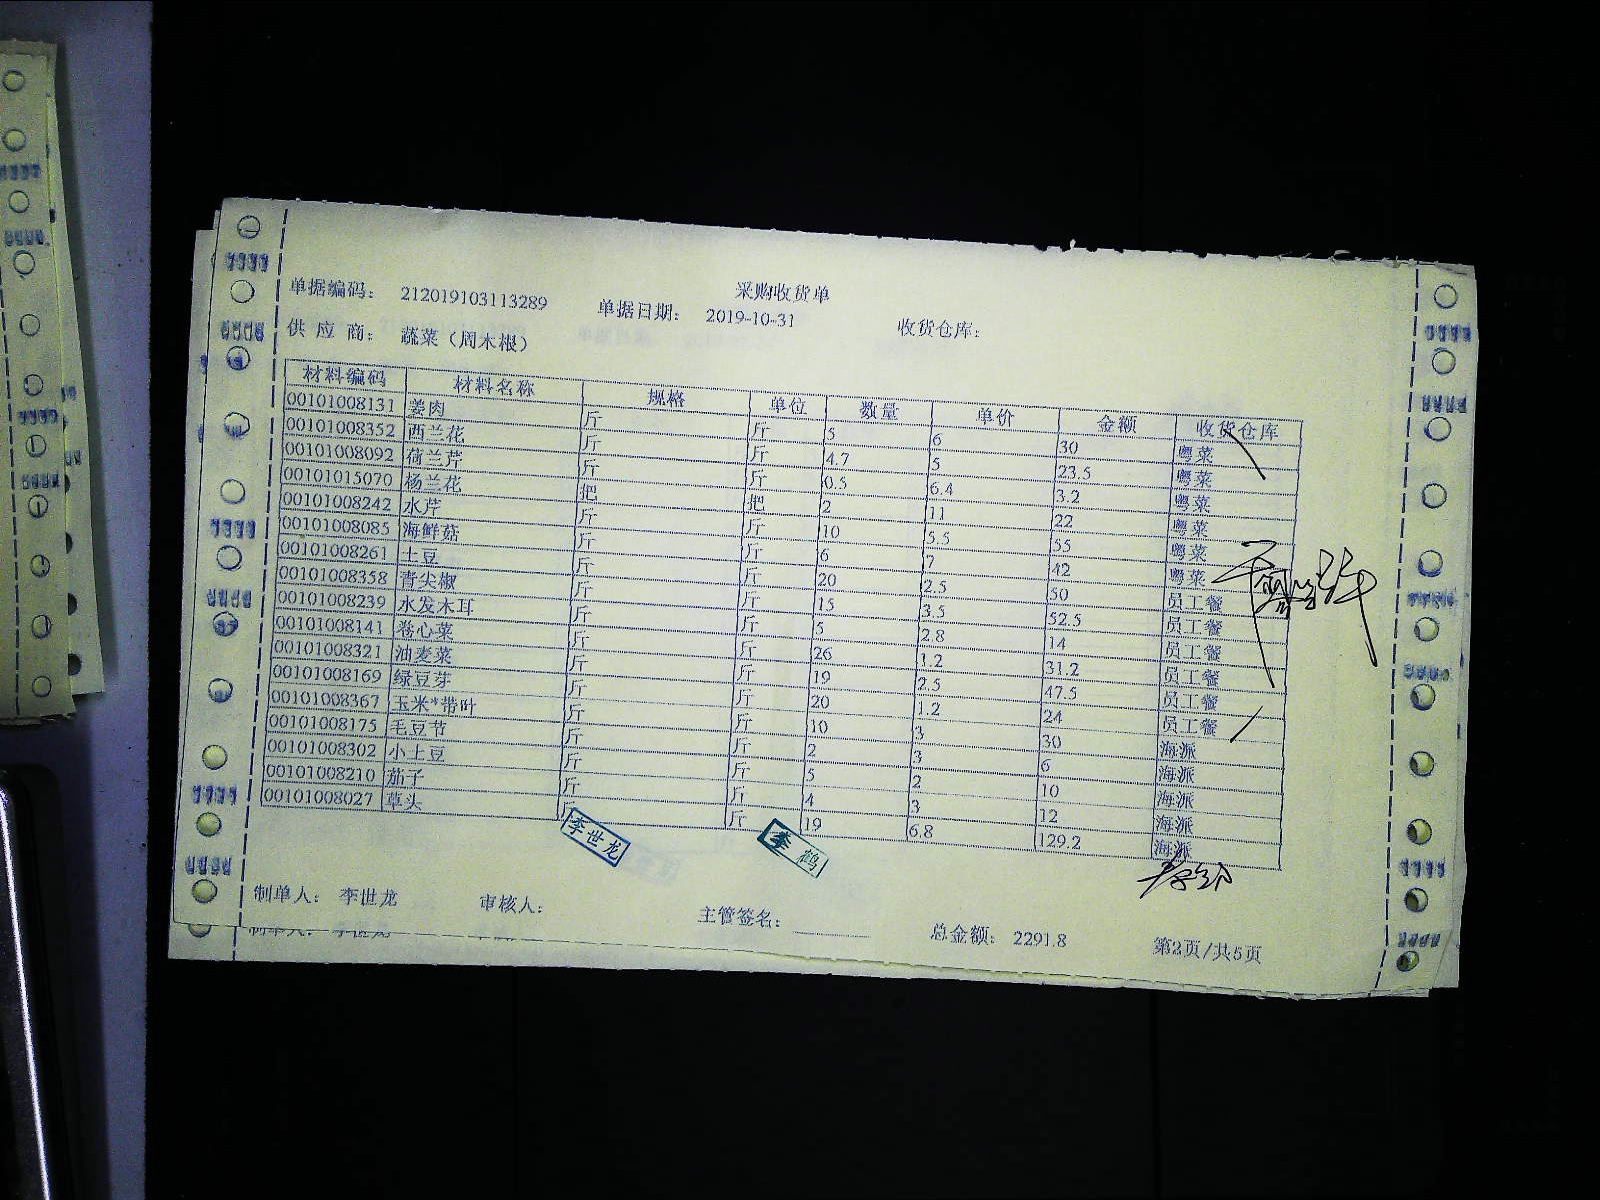 采购收货单
单据编码： 212019103113289 单据日期： 2019-10-31 收货仓库：
供 应 商： 蔬菜（周木根）
材料编码 材料名称 规格 单位 数量 单价 金额 收货仓库
00101008131 姜肉 斤 斤 5 6 30 粤菜
00101008352 西兰花 斤 斤 4.7 5 23.5 粤菜
00101008092 荷兰芹 斤 斤 0.5 6.4 3.2 粤菜
00101015070 杨兰花 把 把 2 11 22 粤菜
00101008242 水芹 斤 斤 10 5.5 55 粤菜
00101008085 海鲜菇 斤 斤 6 7 42 粤菜
00101008261 土豆 斤 斤 20 2.5 50 员工餐
00101008358 青尖椒 斤 斤 15 3.5 52.5 员工餐
00101008239 水发木耳 斤 斤 5 2.8 14 员工餐
00101008141 卷心菜 斤 斤 26 1.2 31.2 员工餐
00101008321 油麦菜 斤 斤 19 2.5 47.5 员工餐
00101008169 绿豆芽 斤 斤 20 1.2 24 员工餐
00101008367 玉米*带叶 斤 斤 10 3 30 海派
00101008175 毛豆节 斤 斤 2 3 6 海派
00101008302 小土豆 斤 斤 5 2 10 海派
00101008210 茄子 斤 斤 4 3 12 海派
00101008027 草头 斤 斤 19 6.8 129.2 海派
李世龙 李鹤
制单人： 李世龙 审核人： 主管签名： 总金额： 2291.8 第2页/共5页
制单人： 李世龙